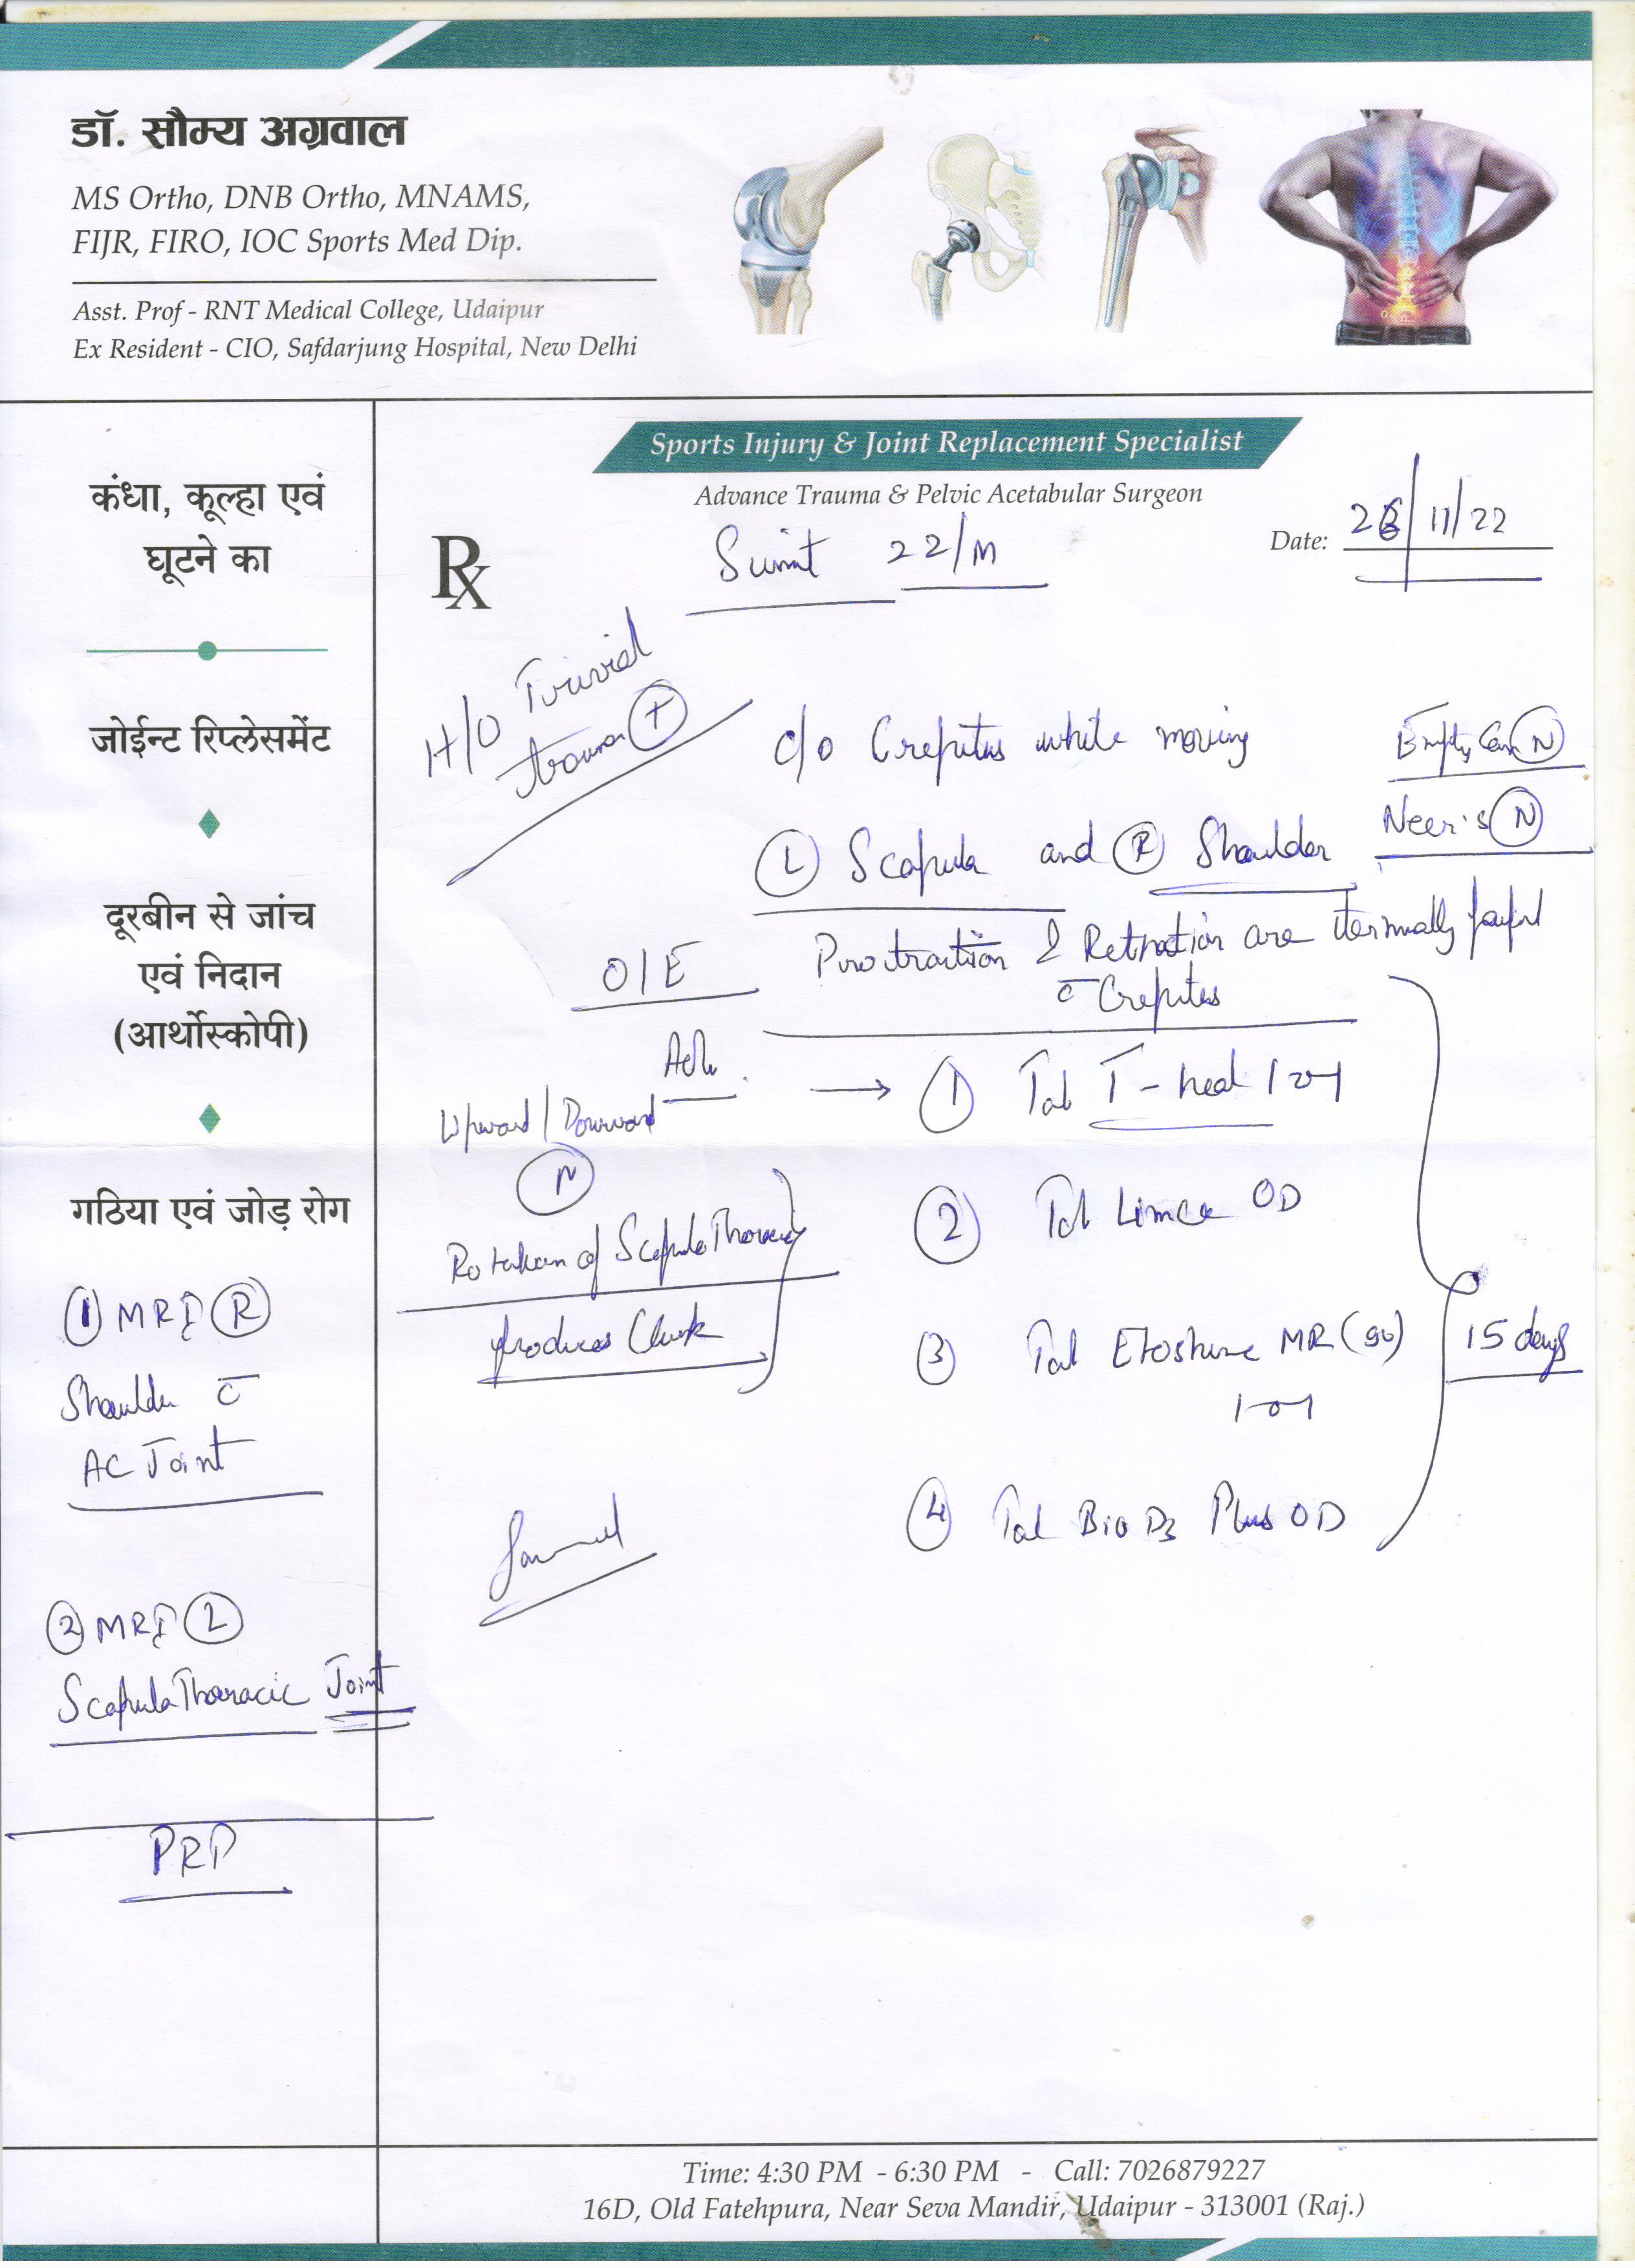 डॉ. सौम्य अग्रवाल
MS Ortho, DNB Ortho, MNAMS,
FIJR, FIRO, IOC Sports Med Dip.
Asst. Prof - RNT Medical College, Udaipur
Ex Resident - CIO, Safdarjung Hospital, New Delhi
Sports Injury & Joint Replacement Specialist
Advance Trauma & Pelvic Acetabular Surgeon
Date: /11/22
Rx
22/M
कंधा, कूल्हा एवं
घूटने का
जोईन्ट रिप्लेसमेंट
दूरबीन से जांच
एवं निदान
(आर्थोस्कोपी)
गठिया एवं जोड़ रोग
① MRI Ⓡ
Shoulder c̄
AC Joint
② MRI Ⓛ
ScapulaThoracic Joint
PRP
H/O Trivial
trauma
c/o Crepitus while moving
Ⓛ Scapula and Ⓡ Shoulder
Empty Can Ⓝ
Neer's Ⓝ
O/E
Protraction & Retraction are painful
c̄ Crepitus
Adv
Upward / Downward
Ⓝ
Rotation of ScapuloThoracic
produces
→ ① Tab T-heal
② Tab OD
③ Tab Etoshine MR
1-0-1
④ Tab Bio D3 Plus OD
15 days
Time: 4:30 PM - 6:30 PM - Call: 7026879227
16D, Old Fatehpura, Near Seva Mandir, Udaipur - 313001 (Raj.)